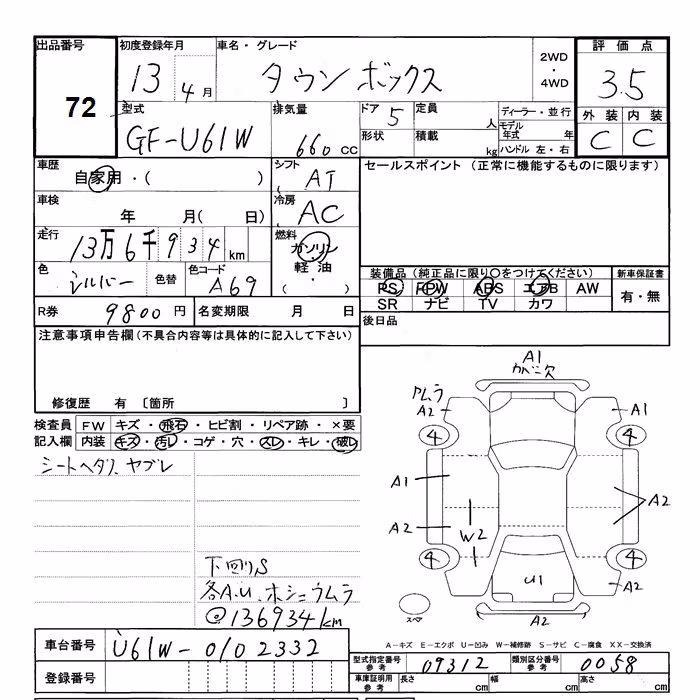 出品番号
72
初度登録年月
13 4月
車名・グレード
タウンボックス
2WD
・
4WD
評価点
3.5
外装 内装
C C
型式
GF-U61W
排気量
660 CC
ドア 5
形状
定員 人
積載 kg
ディーラー・並行
モデル年式 年
ハンドル 左・右
車歴
自家用・( )
シフト
AT
車検
年 月( 日)
冷房
AC
走行
13万6千934km
燃料
ガソリン
軽油
( ・ )
色
シルバー
色替
色コード
A69
R券
9800円
名変期限 月 日
セールスポイント (正常に機能するものに限ります)
装備品(純正品に限り○をつけてください)
PS PW ABS エアB AW
SR ナビ TV カワ
新車保証書
有・無
後日品
注意事項申告欄(不具合内容等は具体的に記入して下さい)
修復歴 有 〔箇所 〕
検査員記入欄
FW キズ・飛石・ヒビ割・リペア跡・×要
内装 キズ・汚レ・コゲ・穴・スレ・キレ・破レ
シートヘタリ ヤブレ
下回りS
各A.U.ホシュウムラ
@136934km
A1
カベニ欠
ムラ
A2
A1
4
4
A1
A2
A2
W2
4
4
U1
A2
A2
スペア
A-キズ E-エクボ U-凹み W-補修跡 S-サビ C-腐食 XX-交換済
車台番号
U61W-0102332
登録番号
型式指定番号
参考
09312
類別区分番号
参考
0058
車庫証明用
参考
長さ cm
幅 cm
高さ cm